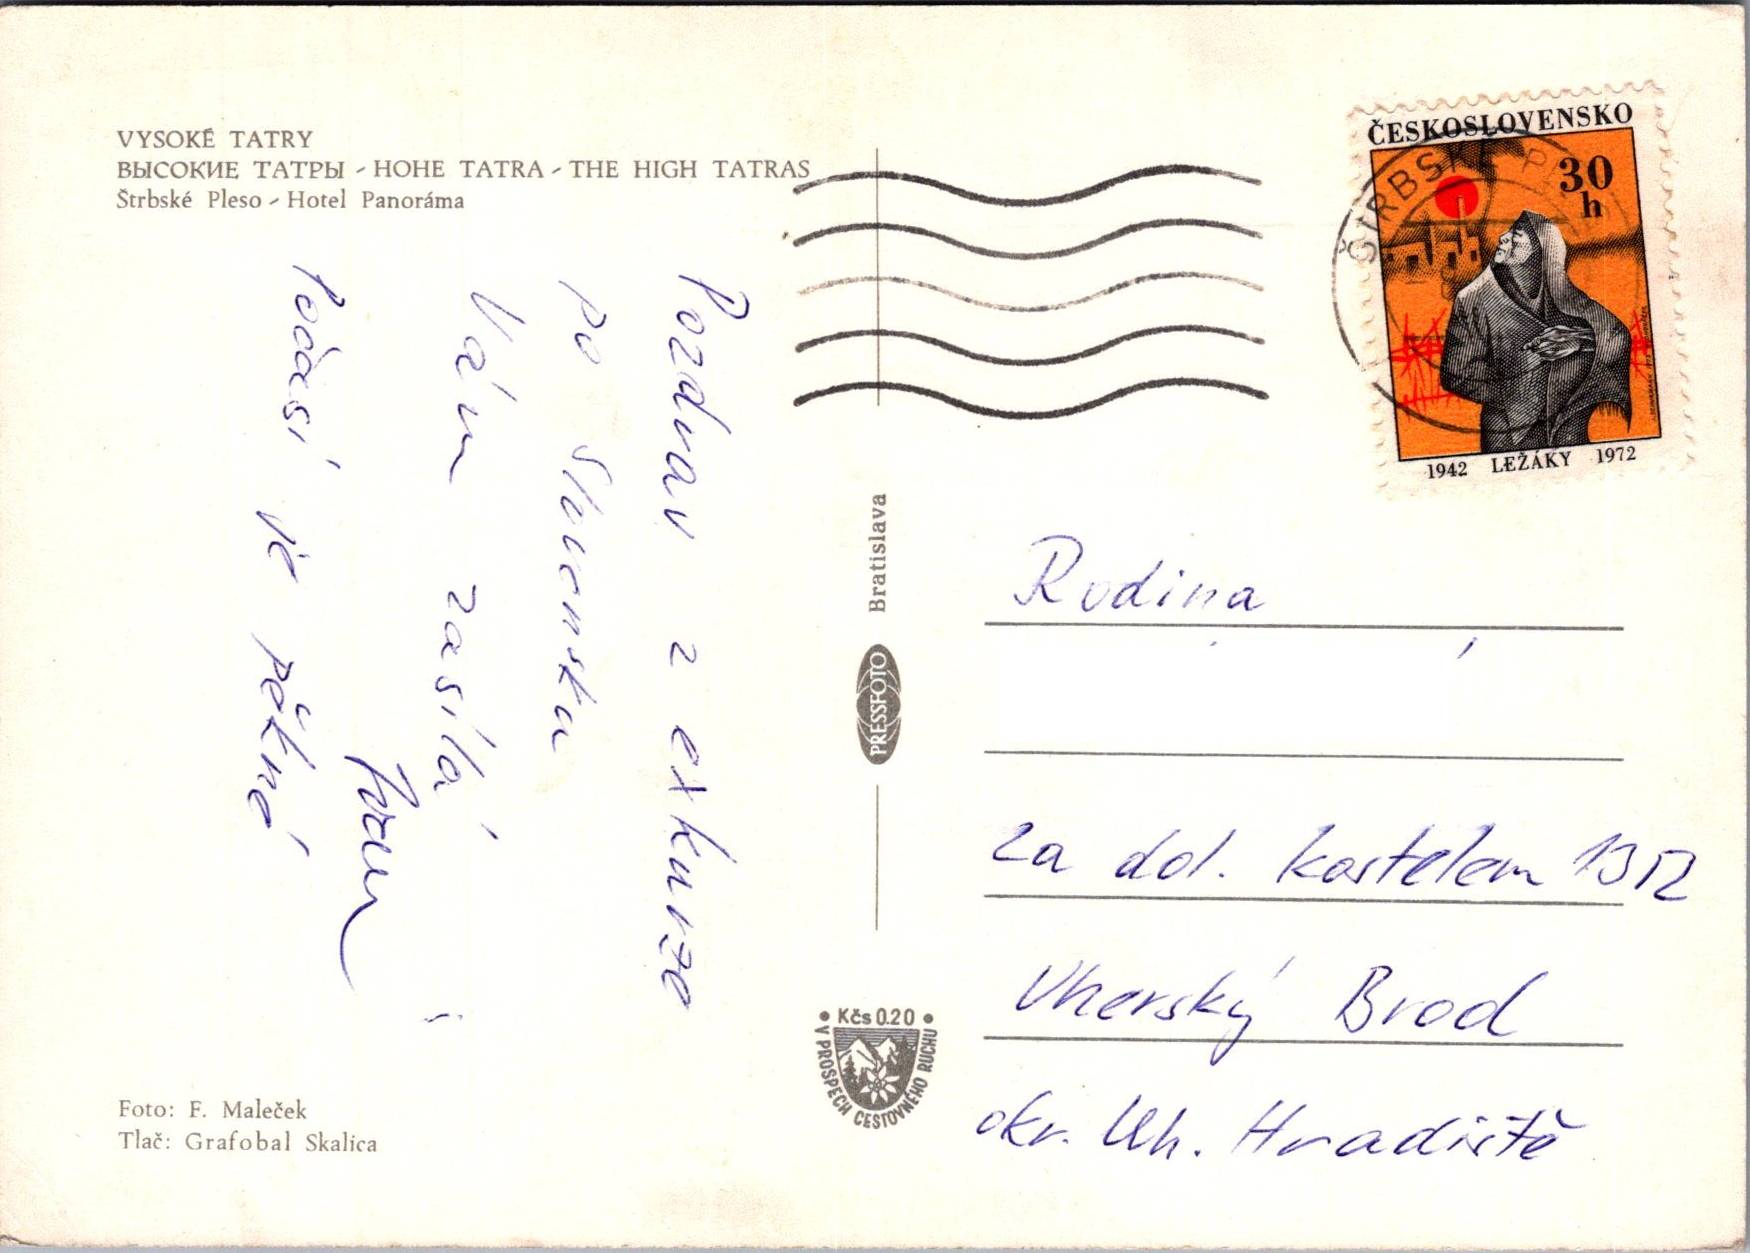 VYSOKÉ TATRY
ВЫСОКИЕ ТАТРЫ - HOHE TATRA - THE HIGH TATRAS
Štrbské Pleso - Hotel Panoráma
Pozdrav z exkurze
po Slovensku
Vám zasílá
Počasí je pěkné
Foto: F. Maleček
Tlač: Grafobal Skalica
Bratislava
PRESSFOTO
Kčs 0.20
V PROSPECH CESTOVNÉHO RUCHU
ČESKOSLOVENSKO
30
h
1942 LEŽÁKY 1972
ŠTRBSKÉ
Rodina
za dol. kostelem
Uherský Brod
okr. Uh. Hradiště